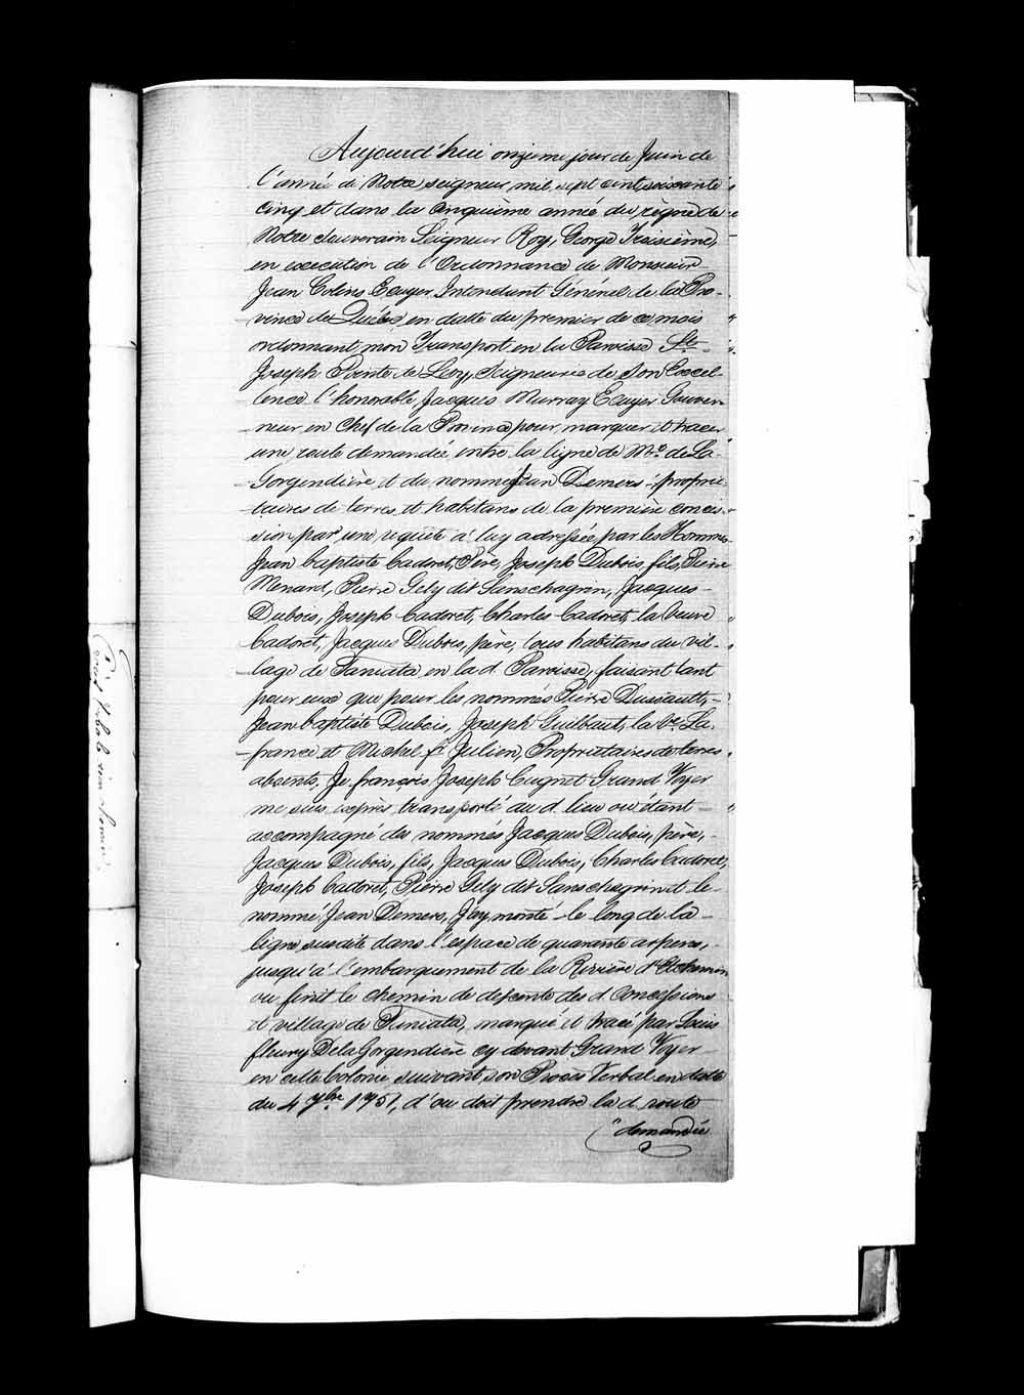 Aujourd'hui onzieme jour de Juin de
l'année de Notre seigneur mil sept cent soixante
cinq et dans la cinquième année du règne de
Notre souverain Seigneur Roy, George Troisième,
en execution de l'Ordonnance de Monsieur
Jean Colins Ecuyer Intendant Général de la Pro-
-vince de Québec, en datte du premier de ce mois
ordonnant mon Transport en la Paroisse St.
Joseph Pointe de Levy, Seigneurie de Son Excel-
-lence l'honorable Jacques Murray Ecuyer Gouver
-neur en Chef de la Province pour marquer et tracer
une route demandée entre la ligne de Mr. de La-
-Gorgendière et du nommé Jean Demers proprié-
-taires de terres et habitans de la première conces-
-sion par une requete à luy adressée par les Nommés
Jean baptiste Cadoret, Père, Joseph Dubois fils, Pierre
Menard, Pierre Gely dit Sanschagrin, Jacques
Dubois, Joseph Cadoret, Charles Cadoret, la Veuve
Cadoret, Jacques Dubois, père, tous habitans du vil-
-lage de Taniata en la d. Paroisse, faisant tant
pour eux que pour les nommés Pierre Dussault,
Jean baptiste Dubois, Joseph Guilbaut, la Ve. La-
-france et Michel Julien, Propriétaires de terres
absents, Je françois Joseph Cugnet Grand Voyer
me suis exprès transporté au d. lieu ou étant
accompagné des nommés Jacques Dubois, père,
Jacques Dubois, fils, Jacques Dubois, Charles Cadoret,
Joseph Cadoret, Pierre Gely dit Sanschagrin et le
nommé Jean Demers, J'ay monté le long de la
ligne suscite dans l'espace de quarante arpens,
jusqu'à l'embarquement de la Rivière d'Etchemin
ou finit le chemin de descente des d. concessions
et village de Taniata, marqué et tracé par Louis
fleury De la Gorgendière cy devant Grand Voyer
en cette Colonie, suivant son Procès Verbal en datte
du 4 7bre 1751, d'ou doit prendre la d. route
demandée